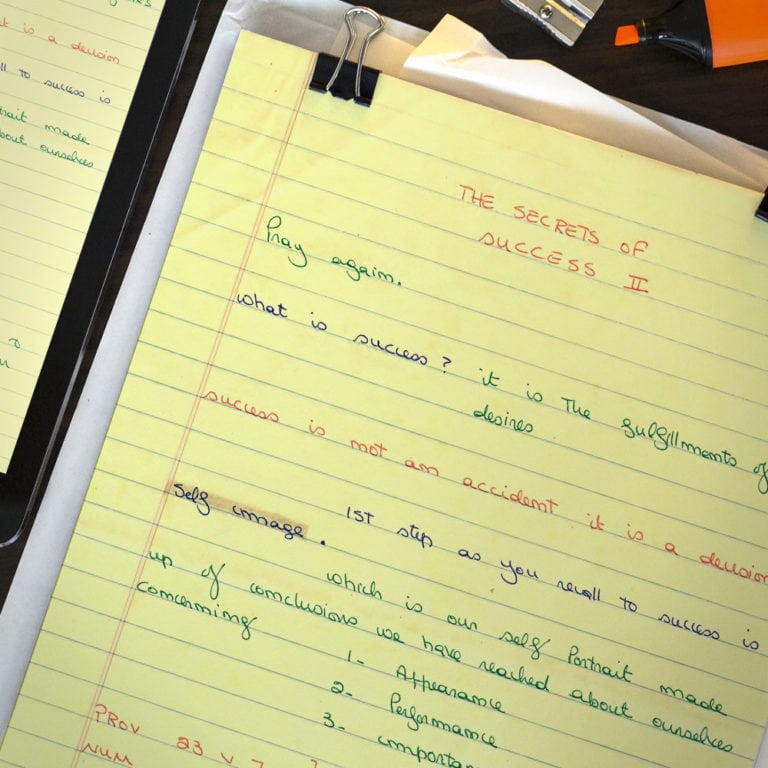 THE SECRETS OF
SUCCESS II
Pray again.
what is success? it is The fulfillments of
desires
success is not an accident it is a decision
Self image. 1ST step as you recall to success is
which is our self Portrait made
up of conclusions we have reached about ourselves
concerning
1- Appearance
2- Performance
3-
PROV 23 v 7
NUM
t is a decision
ll to success is
trait made
bout ourselves